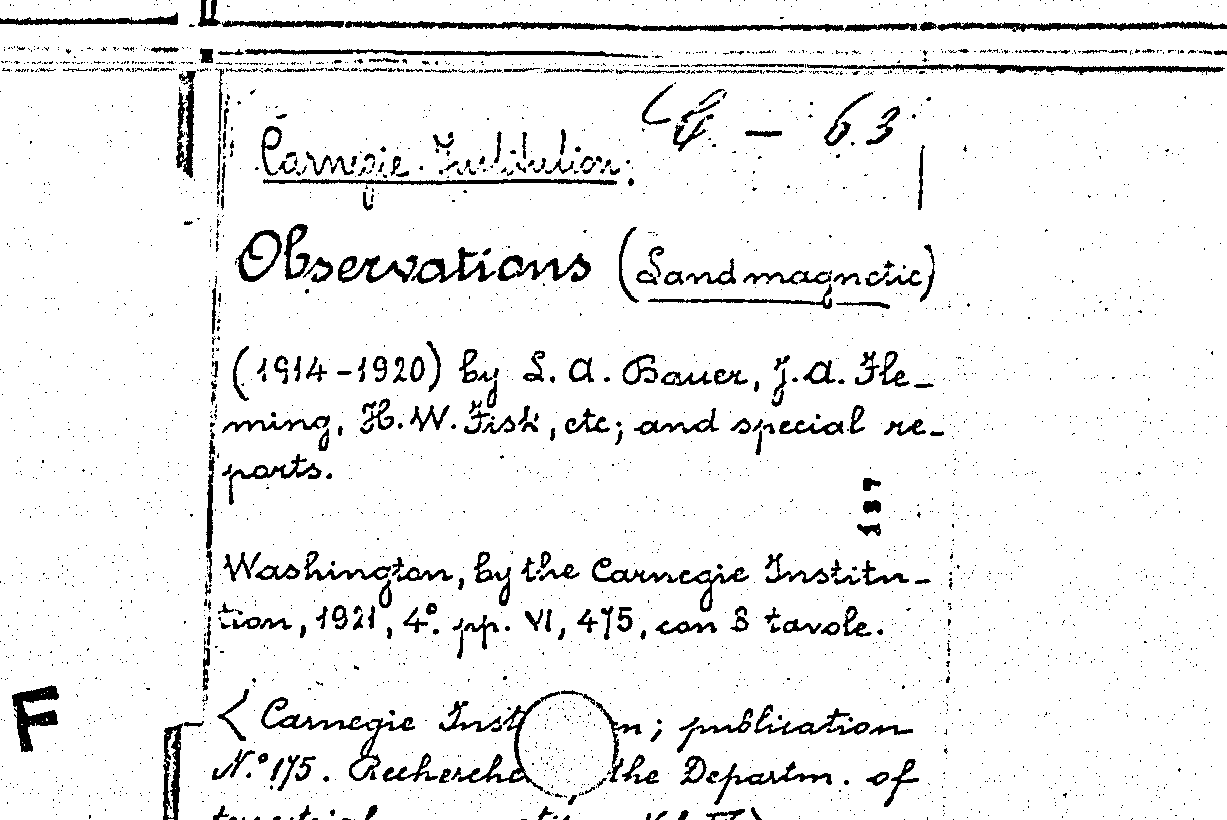 G - 63
Carnegie Institution.
Observations (Landmagnetic)
(1914-1920) by L. A. Bauer, J. A. Fle-
ming, H. W. Fisk, etc; and special re-
ports.
137
Washington, by the Carnegie Institu-
tion, 1921, 4°. pp. VI, 475, con 8 tavole.
F
< Carnegie Inst n; publication
N.° 175. Recherche the Departm. of